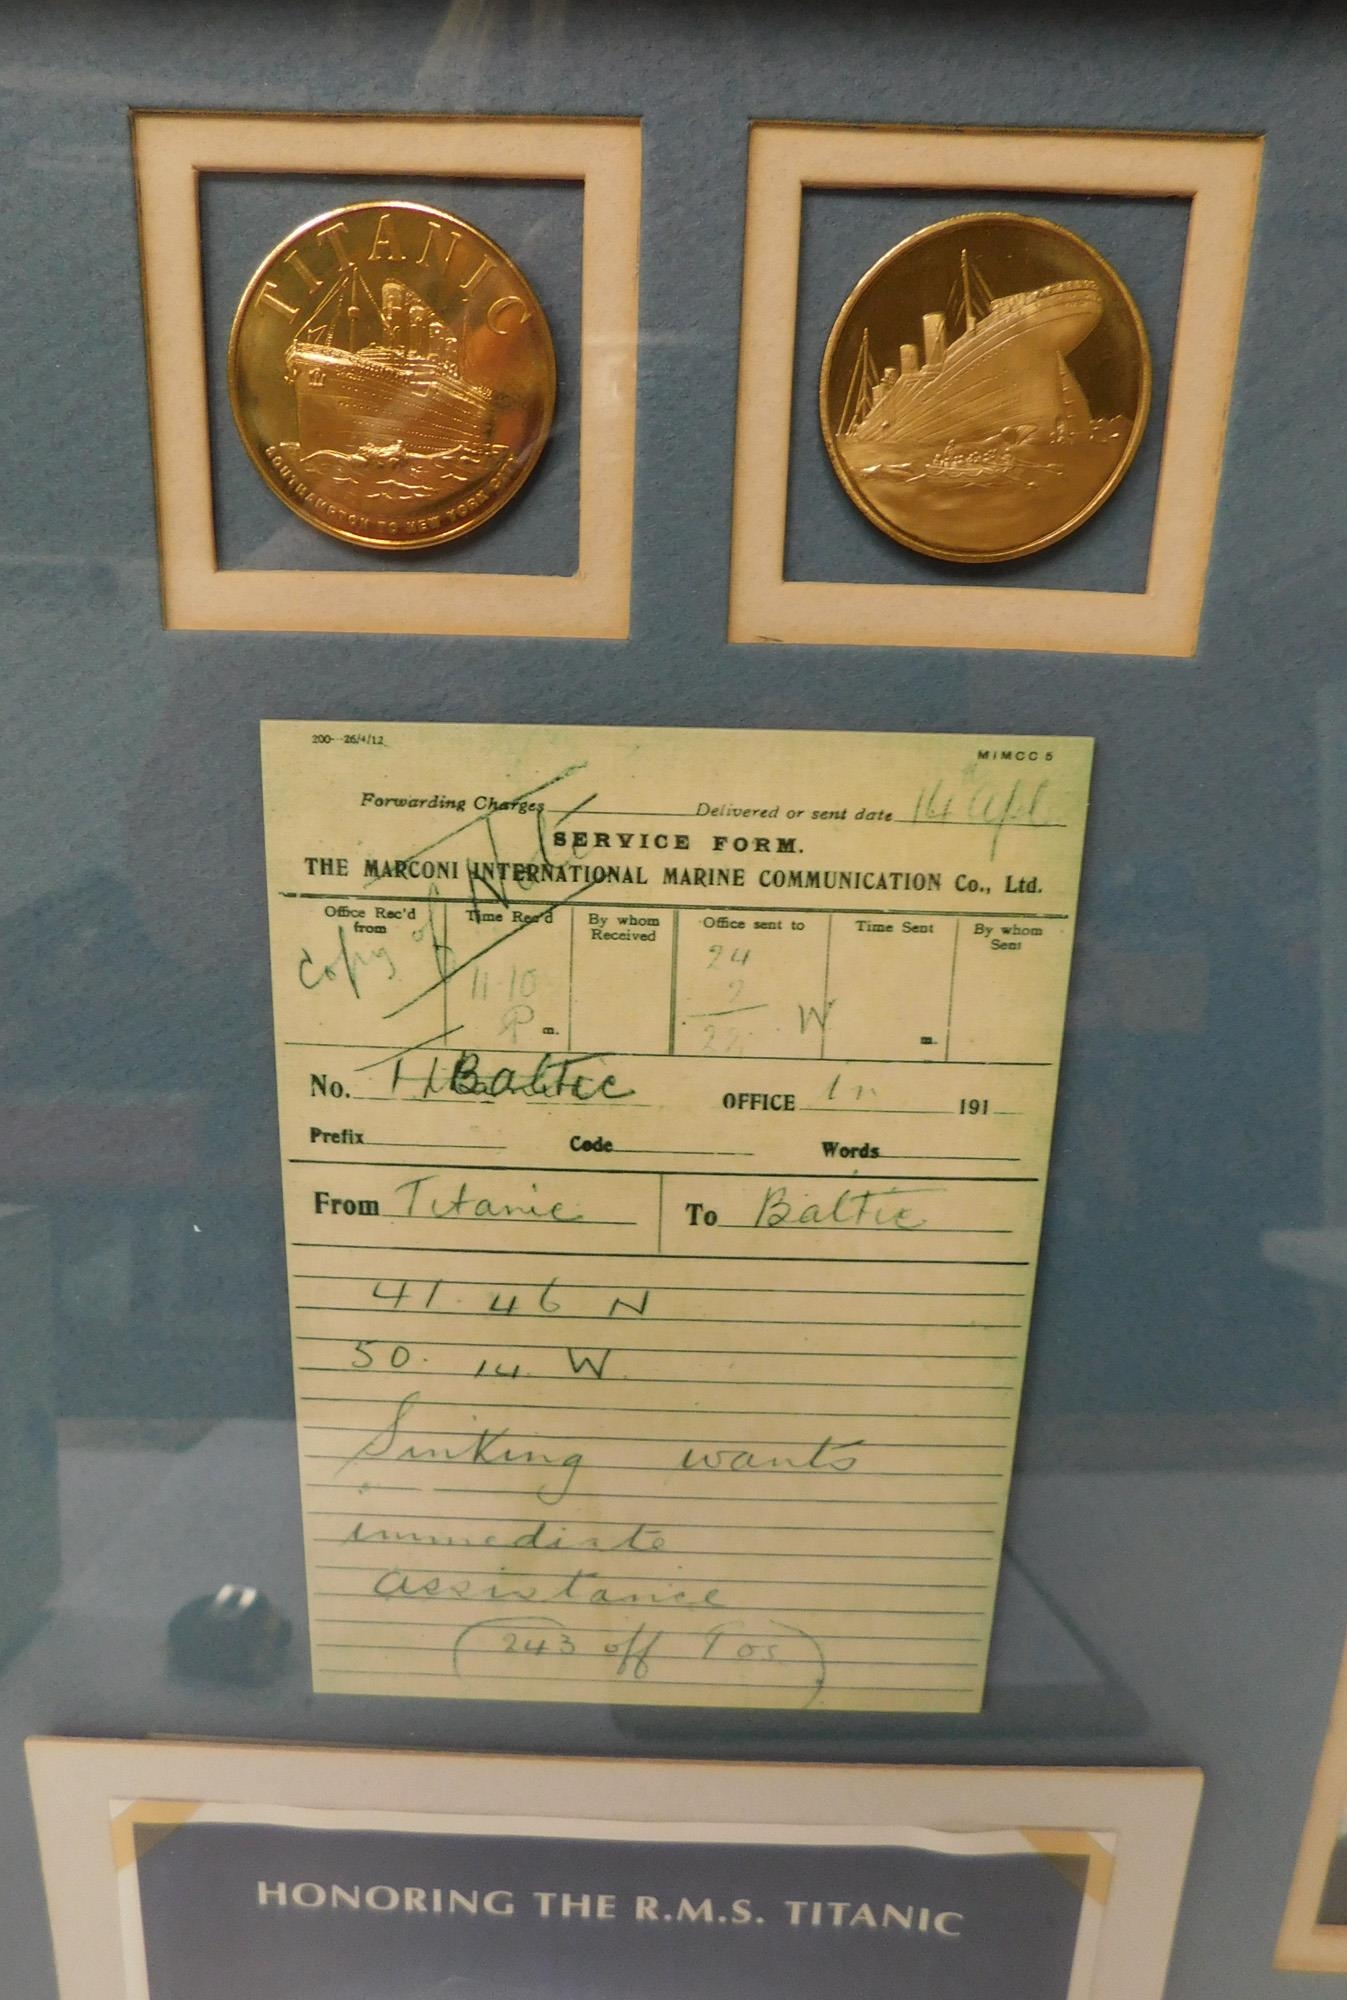 TITANIC
SOUTHAMPTON TO NEW YORK CITY
200---26/4/12
MIMCC 5
Forwarding Charges
Delivered or sent date 14 Apl
SERVICE FORM.
THE MARCONI INTERNATIONAL MARINE COMMUNICATION Co., Ltd.
Office Rec'd from
Time Rec'd
By whom Received
Office sent to
Time Sent
By whom Sent
Copy of
11-10
P m.
24
2
W
m.
No. Baltic OFFICE 191
Prefix Code Words
From Titanic To Baltic
41. 46 N
50. 14. W.
Sinking wants
immediate
assistance
(243 off
HONORING THE R.M.S. TITANIC